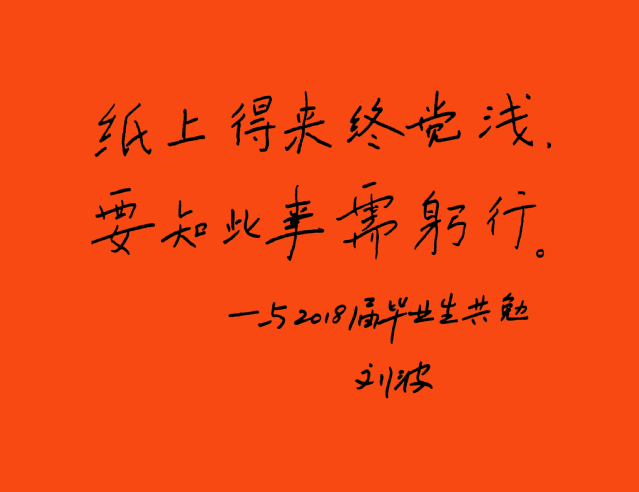 纸上得来终觉浅,
要知此事需躬行。
——与2018届毕业生共勉
刘波